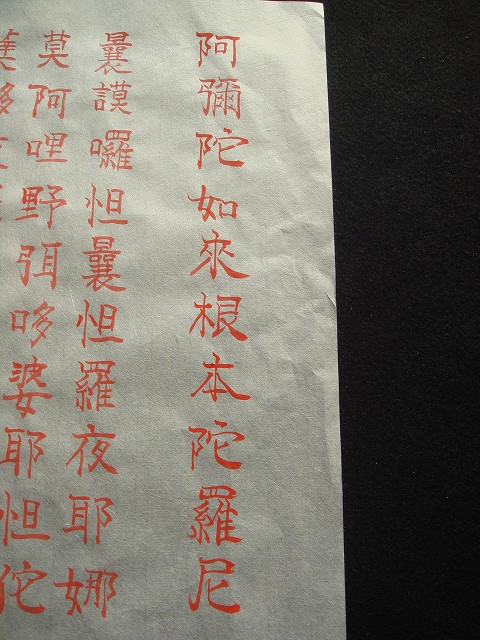 阿彌陀如來根本陀羅尼
曩謨囉怛曩怛羅夜耶娜
莫阿哩野弭哆婆耶怛佗